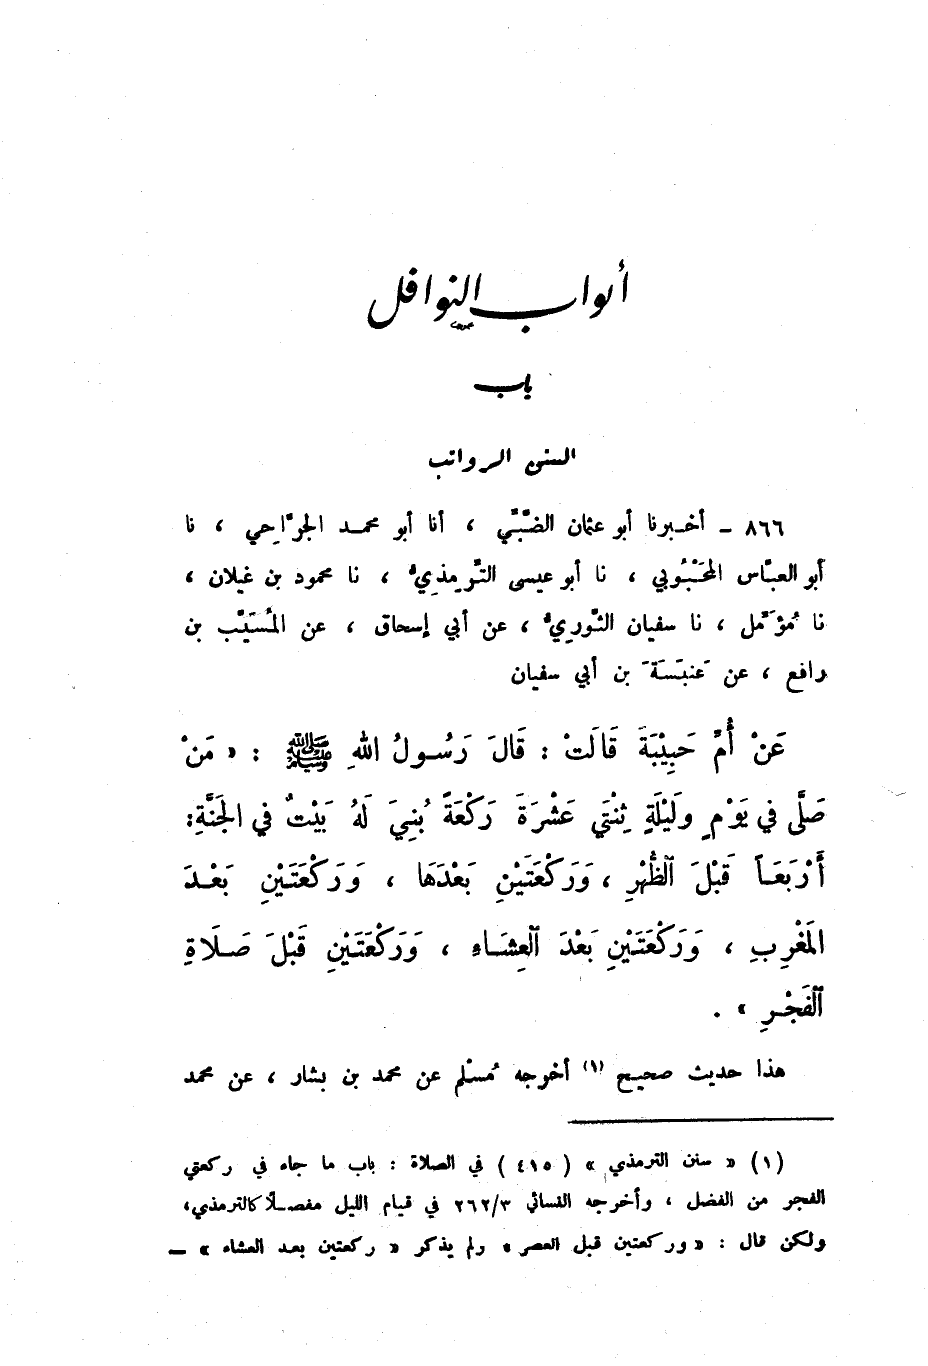 أبواب النوافل
باب
السنن الرواتب
٨٦٦ ـ أخبرنا أبو عثمان الضَّبِّيُّ ، أنا أبو محمد الجرَّاحِي ، نا
أبو العبَّاس المَحْبُوبي ، نا أبو عيسى التِّرمذيُّ ، نا محمود بن غيلان ،
نا مُؤمَّل ، نا سفيان الثَّوريُّ ، عن أبي إسحاق ، عن المُسَيَّب بن
رافع ، عن عَنبَسَةَ بن أبي سفيان
عَنْ أُمِّ حَبِيْبَةَ قَالَتْ : قَالَ رَسُولُ اللهِ ﷺ : « مَنْ
صَلَّى في يَوْمٍ ولَيْلَةٍ ثِنْتَي عَشْرَةَ رَكْعَةً بُنِيَ لَهُ بَيْتٌ في الجَنَّةِ:
أَرْبَعَاً قَبْلَ ٱلظُّهْرِ ، وَرَكْعَتَيْنِ بَعْدَهَا ، وَرَكْعَتَيْنِ بَعْدَ
المَغْرِبِ ، وَرَكْعَتَيْنِ بَعْدَ ٱلعِشَاءِ ، وَرَكْعَتَيْنِ قَبْلَ صَلَاةِ
ٱلفَجْرِ » .
هذا حديث صحيح (١) أخرجه مُسْلم عن محمد بن بشار ، عن محمد
(١) « سنن الترمذي » ( ٤١٥ ) في الصلاة : باب ما جاء في ركعتي
الفجر من الفضل ، وأخرجه النسائي ٢٦٢/٣ في قيام الليل مفصلاً كالترمذي،
ولكن قال : « وركعتين قبل العصر » ولم يذكر « ركعتين بعد العشاء » ـ